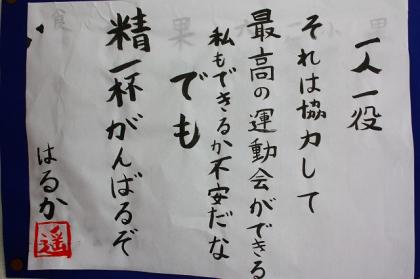 一人一役
それは協力して
最高の運動会ができる
私もできるか不安だな
でも
精一杯がんばるぞ
はるか
遥